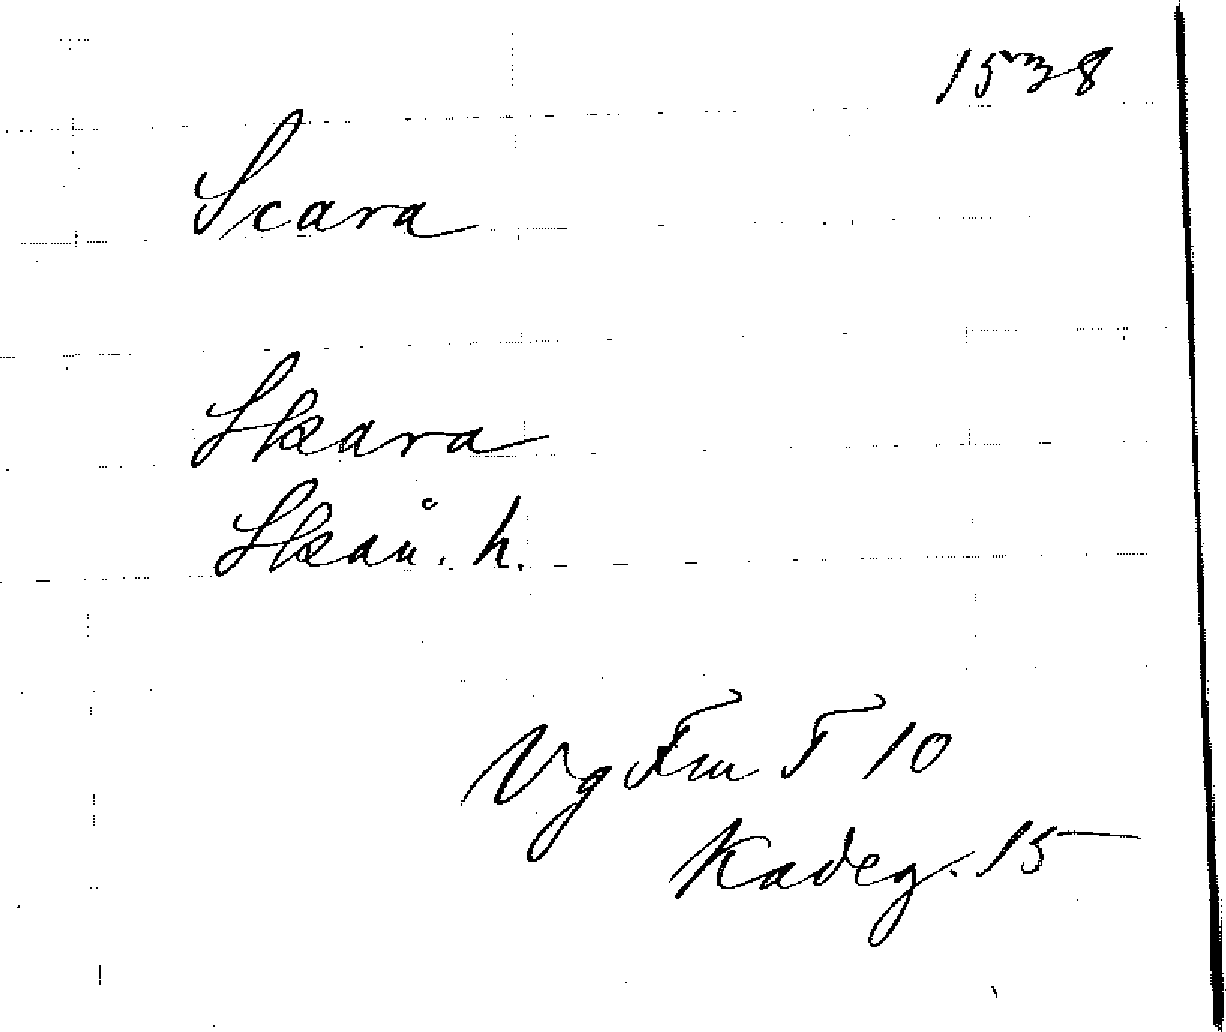 1538
Scara
Skara
Skån. h.
Vg Fm F 10
Kadeg. 15